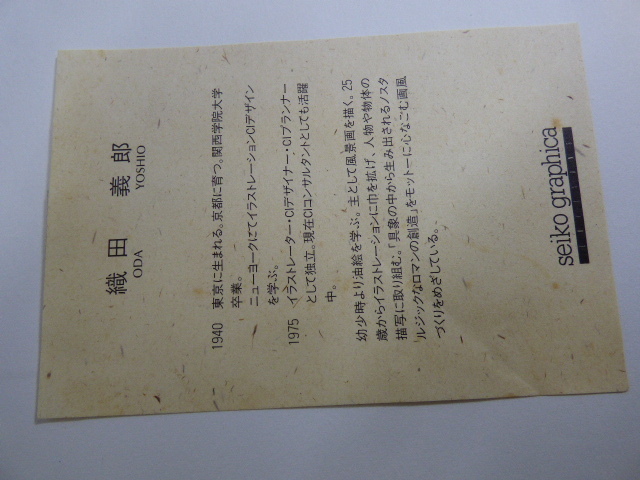 織田 義郎
ODA YOSHIO
1940 東京に生まれる。京都に育つ。関西学院大学
卒業。
ニューヨークにてイラストレーションCIデザイン
を学ぶ。
1975 イラストレーター・CIデザイナー・CIプランナー
として独立。現在CIコンサルタントとしても活躍
中。
幼少時より油絵を学ぶ。主として風景画を描く。25
歳からイラストレーションに巾を拡げ、人物や物体の
描写に取り組む。「具象の中から生み出されるノスタ
ルジックなロマンの創造」をモットーに心なごむ画風
づくりをめざしている。
seiko graphica